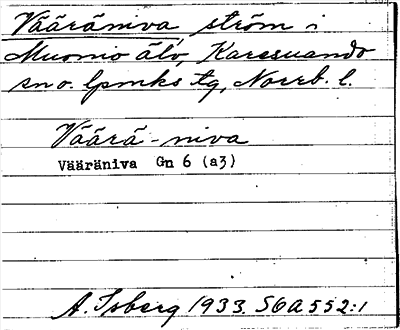 Vääräniva, ström i
Muonio älv, Karesuando
sn o. lpmks tg, Norrb. l.
Väärä-niva
Vääräniva Gn 6 (a3)
A. Isberg 1933. SGA 552:1